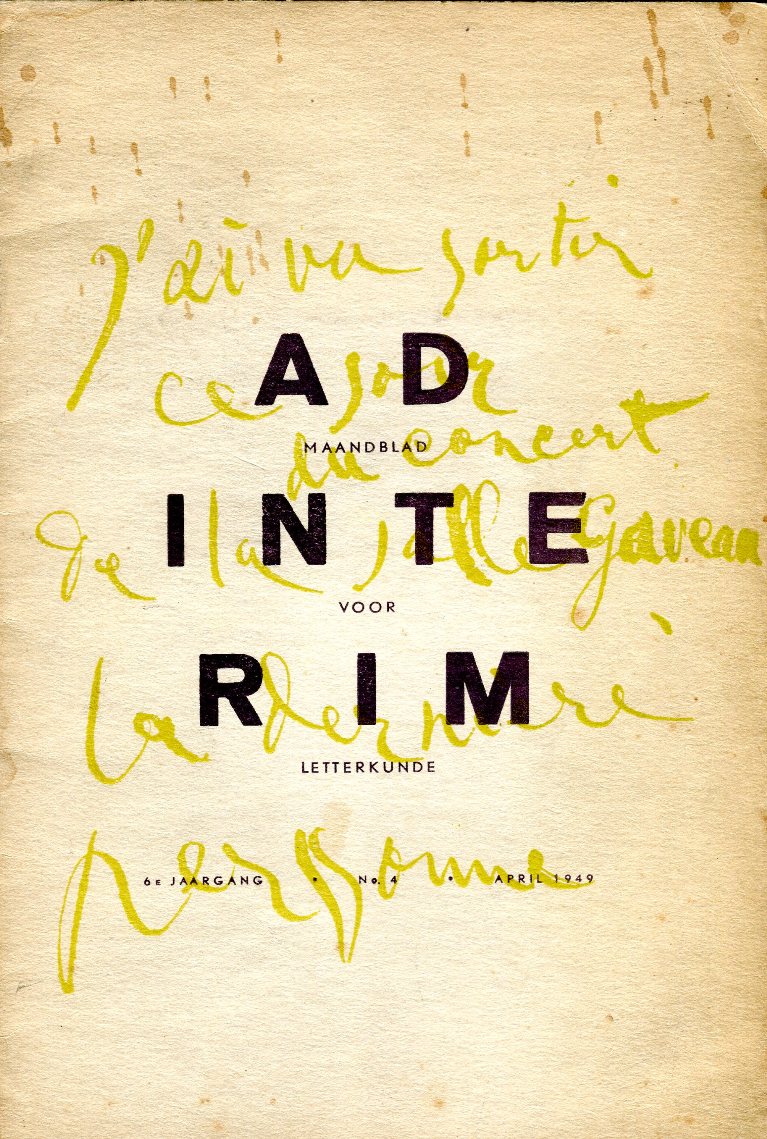 J'ai vu sortir
A D
ce jour
MAANDBLAD
du concert
I N T E
de la salle Gaveau
VOOR
R I M
la dernière
LETTERKUNDE
personne
6E JAARGANG • No. 4 • APRIL 1949